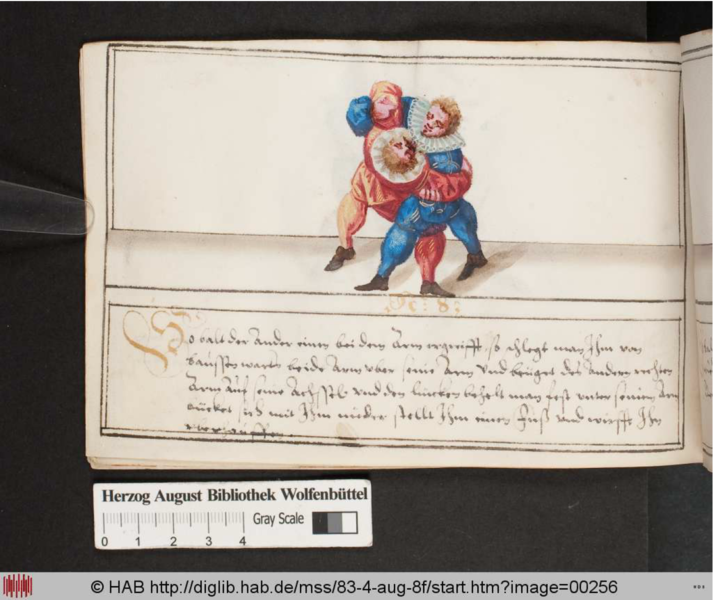 N: 8:
So balt der Ander einen bei dem Arm ergreifft, so schlegt man Ihm von
Aussen warts beide Arm uber seine Arm und beüget des Andern rechten
Arm Auf seine Achssel, und den lincken behelt man fest unter seinem Arm
bücket sich mit Ihm nieder stellt Ihm einen Fuß und wirfft Ihn
Herzog August Bibliothek Wolfenbüttel
Gray Scale
0 1 2 3 4
© HAB http://diglib.hab.de/mss/83-4-aug-8f/start.htm?image=00256